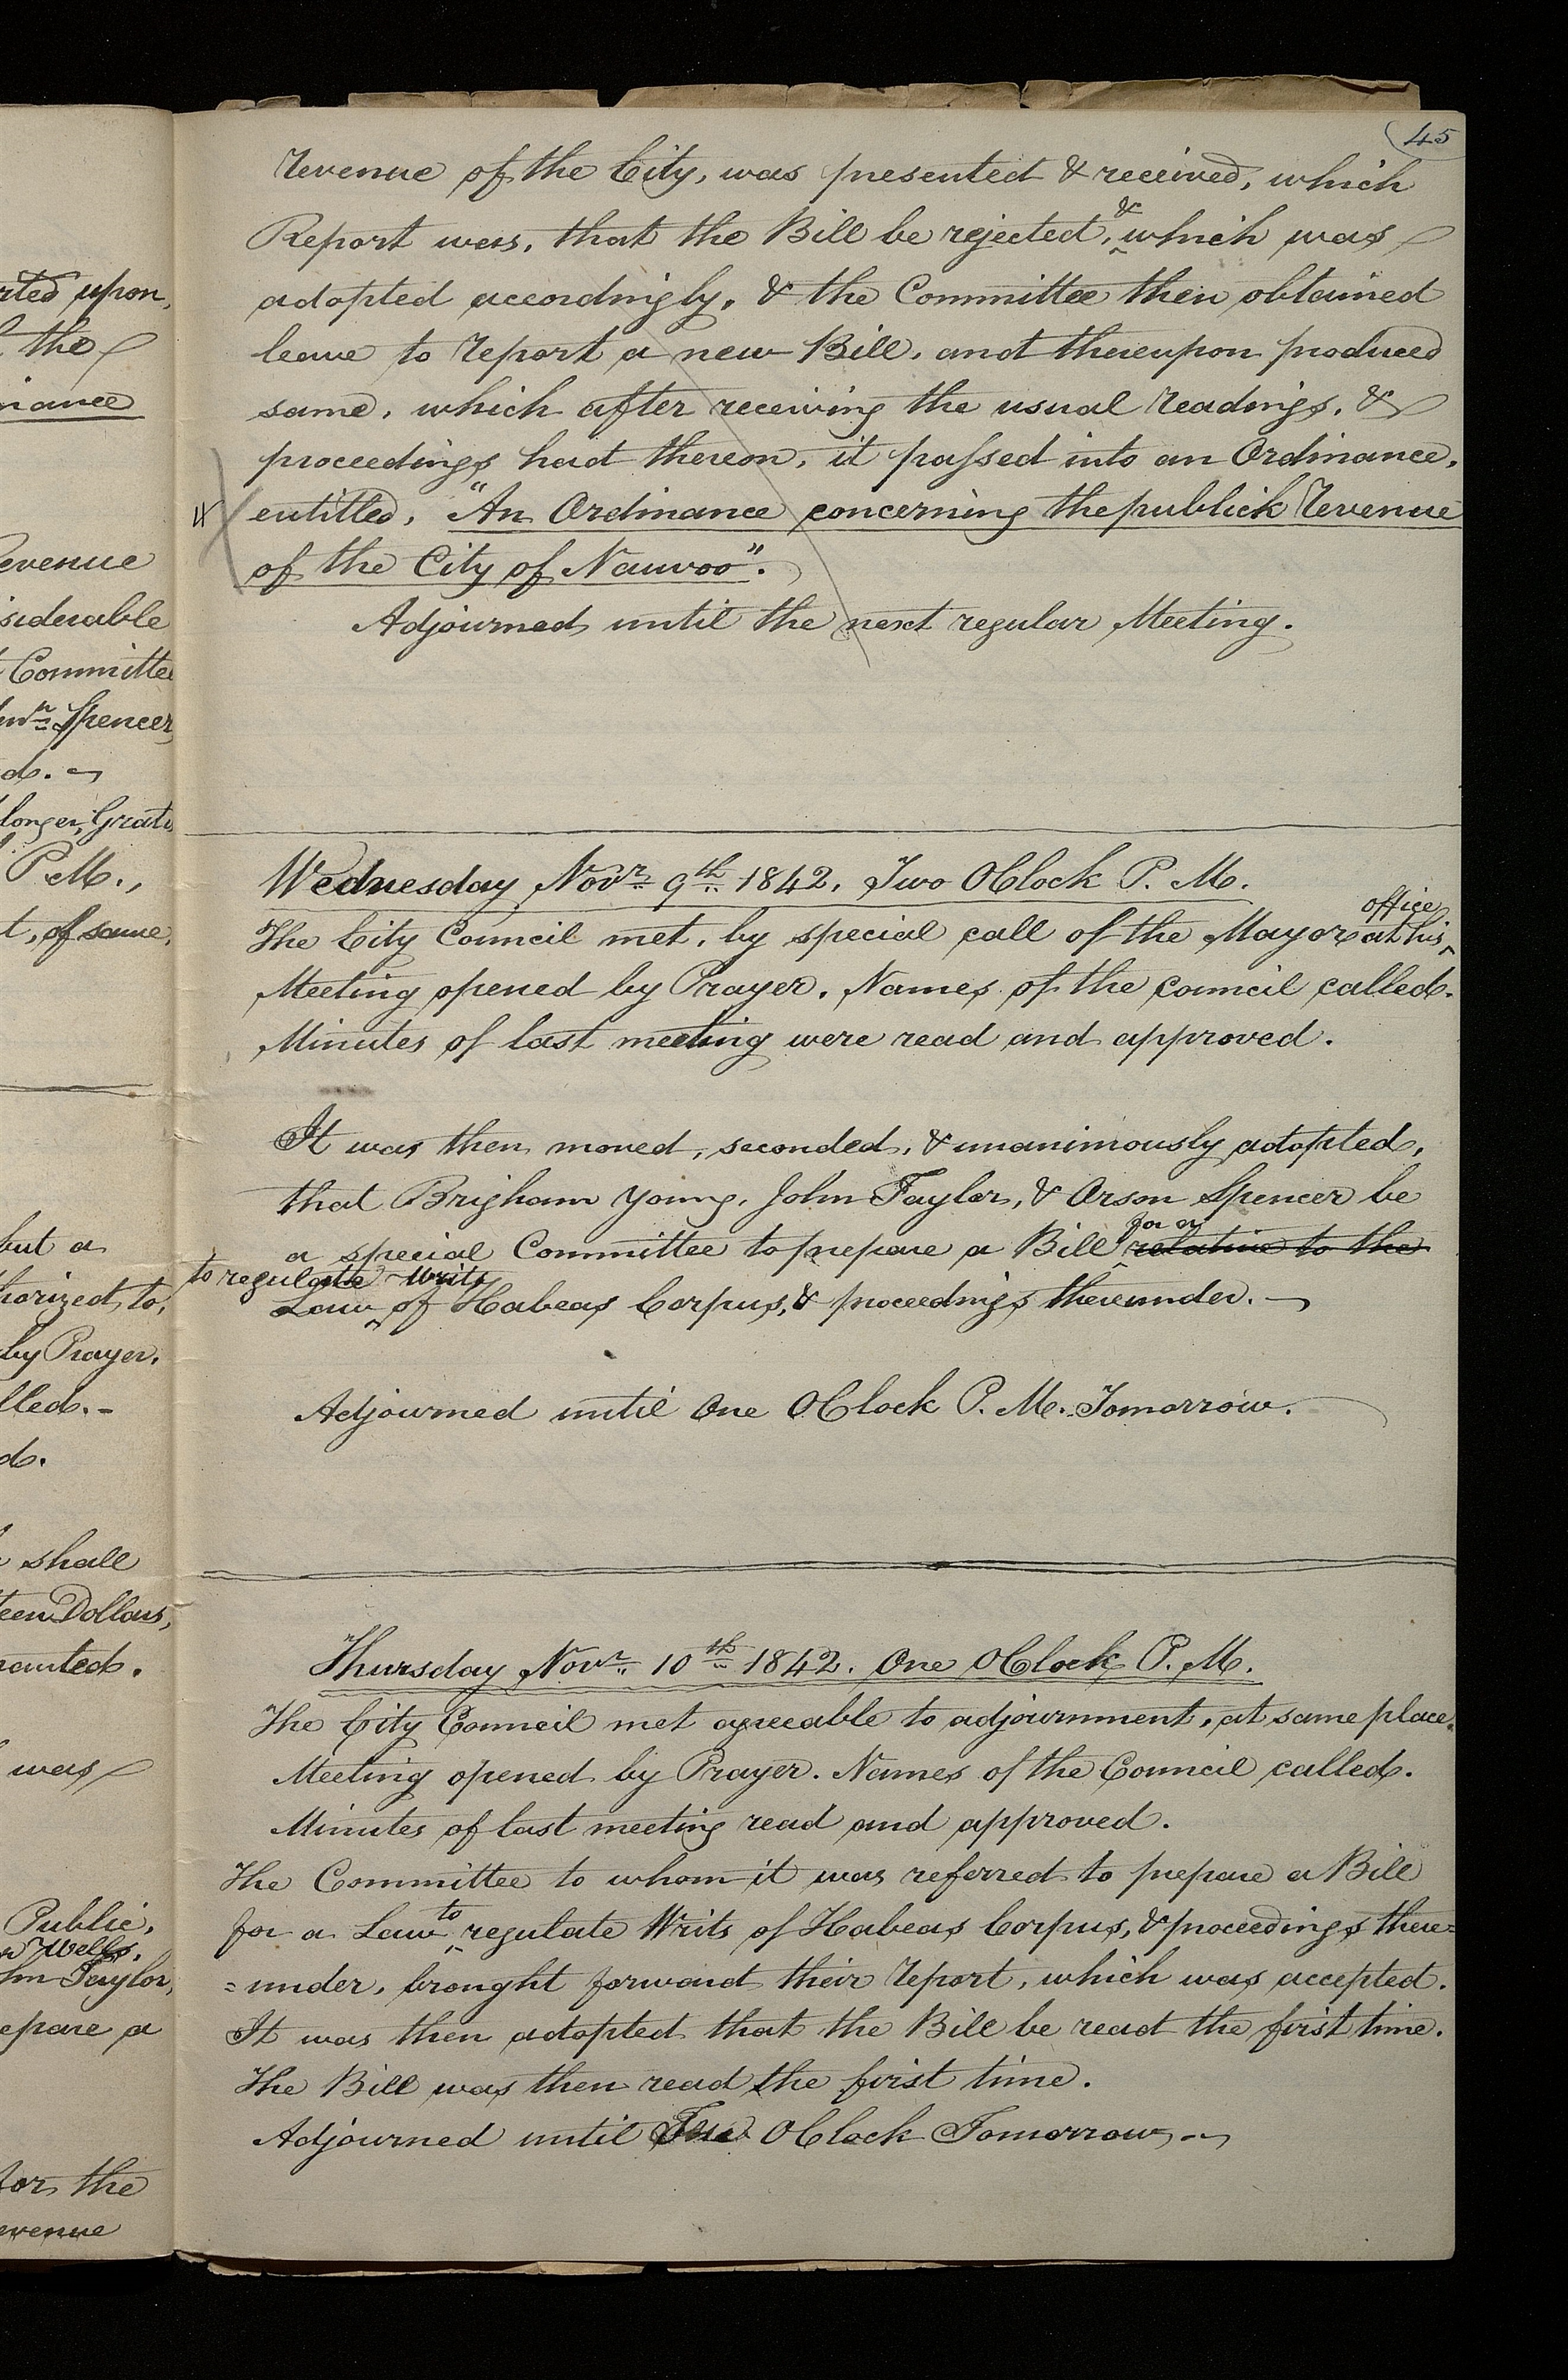 45
rted upon,
the
nance
evenue
siderable
Committee
Spencer,
d.
longer, Grats
P. M.,
t, of same,
but a
horized to,
by Prayer.
lled. -
d.
shall
teen Dollars,
ranted.
was
Public,
Wells,
hn Taylor,
epare a
for the
evenue
revenue of the City, was presented & received, which
Report was, that the Bill be rejected, & which was
adopted accordingly, & the Committee then obtained
leave to report a new Bill, and thereupon produced
same, which after receiving the usual readings, &
proceedings had thereon, it passed into an Ordinance,
entitled, "An Ordinance concerning the publick Revenue
of the City of Nauvoo".
Adjourned until the next regular Meeting.
Wednesday Novr. 9th. 1842. Two OClock P. M.
The City Council met, by special call of the Mayor at his office
Meeting opened by Prayer. Names of the council called.
Minutes of last meeting were read and approved.
It was then moved, seconded, & unanimously adopted,
that Brigham Young, John Taylor, & Orson Spencer be
a special Committee to prepare a Bill for a relative to the
Law to regulate Writs of Habeas Corpus, & proceedings thereunder.
Adjourned until One OClock P. M. Tomorrow.
Thursday Novr. 10th. 1842. One OClock P. M.
The City Council met agreeable to adjournment, at same place.
Meeting opened by Prayer. Names of the Council called.
Minutes of last meeting read and approved.
The Committee to whom it was referred to prepare a Bill
for a Law to regulate Writs of Habeas Corpus, & proceedings there=
=under, brought forward their report, which was accepted.
It was then adopted that the Bill be read the first time.
The Bill was then read the first time.
Adjourned until OClock Tomorrow.